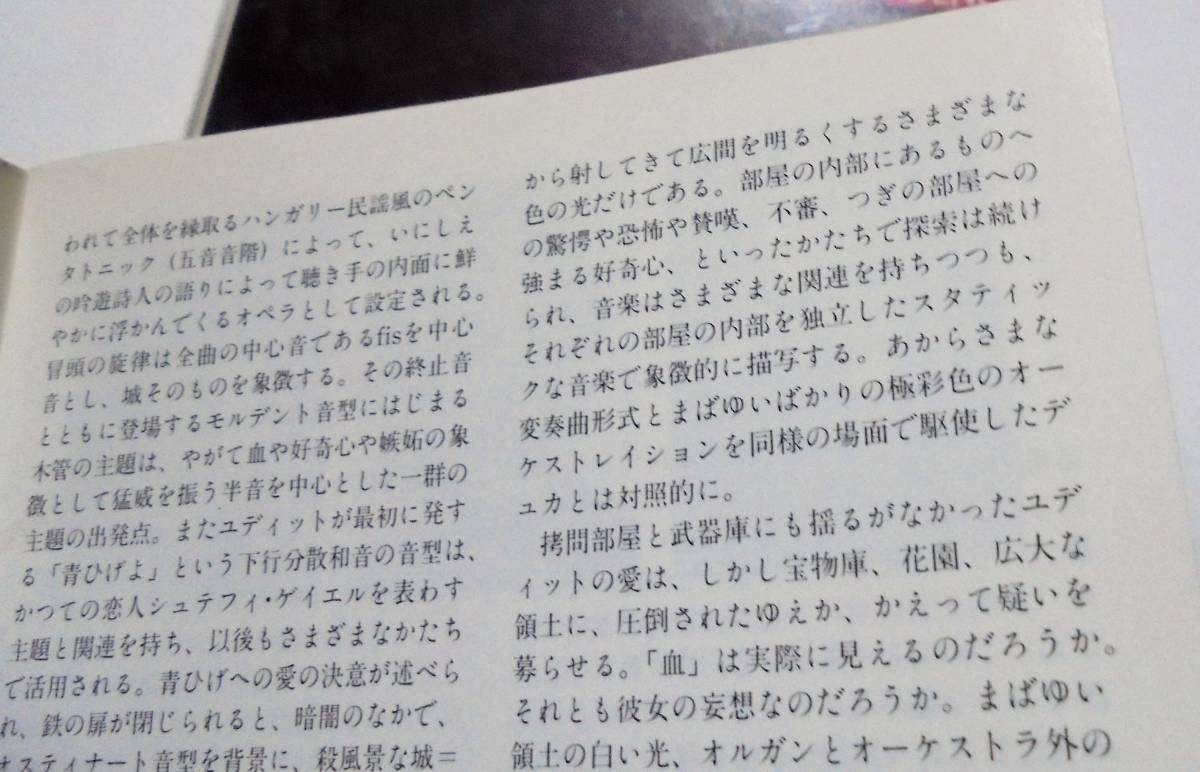 われて全体を縁取るハンガリー民謡風のペン
タトニック（五音音階）によって、いにしえ
の吟遊詩人の語りによって聴き手の内面に鮮
やかに浮かんでくるオペラとして設定される。
冒頭の旋律は全曲の中心音であるfisを中心
音とし、城そのものを象徴する。その終止音
とともに登場するモルデント音型にはじまる
木管の主題は、やがて血や好奇心や嫉妬の象
徴として猛威を振う半音を中心とした一群の
主題の出発点。またユディットが最初に発す
る「青ひげよ」という下行分散和音の音型は、
かつての恋人シュテフィ・ゲイエルを表わす
主題と関連を持ち、以後もさまざまなかたち
で活用される。青ひげへの愛の決意が述べら
れ、鉄の扉が閉じられると、暗闇のなかで、
オスティナート音型を背景に、殺風景な城＝
から射してきて広間を明るくするさまざまな
色の光だけである。部屋の内部にあるものへ
の驚愕や恐怖や賛嘆、不審、つぎの部屋への
強まる好奇心、といったかたちで探索は続け
られ、音楽はさまざまな関連を持ちつつも、
それぞれの部屋の内部を独立したスタティッ
クな音楽で象徴的に描写する。あからさまな
変奏曲形式とまばゆいばかりの極彩色のオー
ケストレイションを同様の場面で駆使したデ
ュカとは対照的に。
拷問部屋と武器庫にも揺るがなかったユデ
ィットの愛は、しかし宝物庫、花園、広大な
領土に、圧倒されたゆえか、かえって疑いを
募らせる。「血」は実際に見えるのだろうか。
それとも彼女の妄想なのだろうか。まばゆい
領土の白い光、オルガンとオーケストラ外の